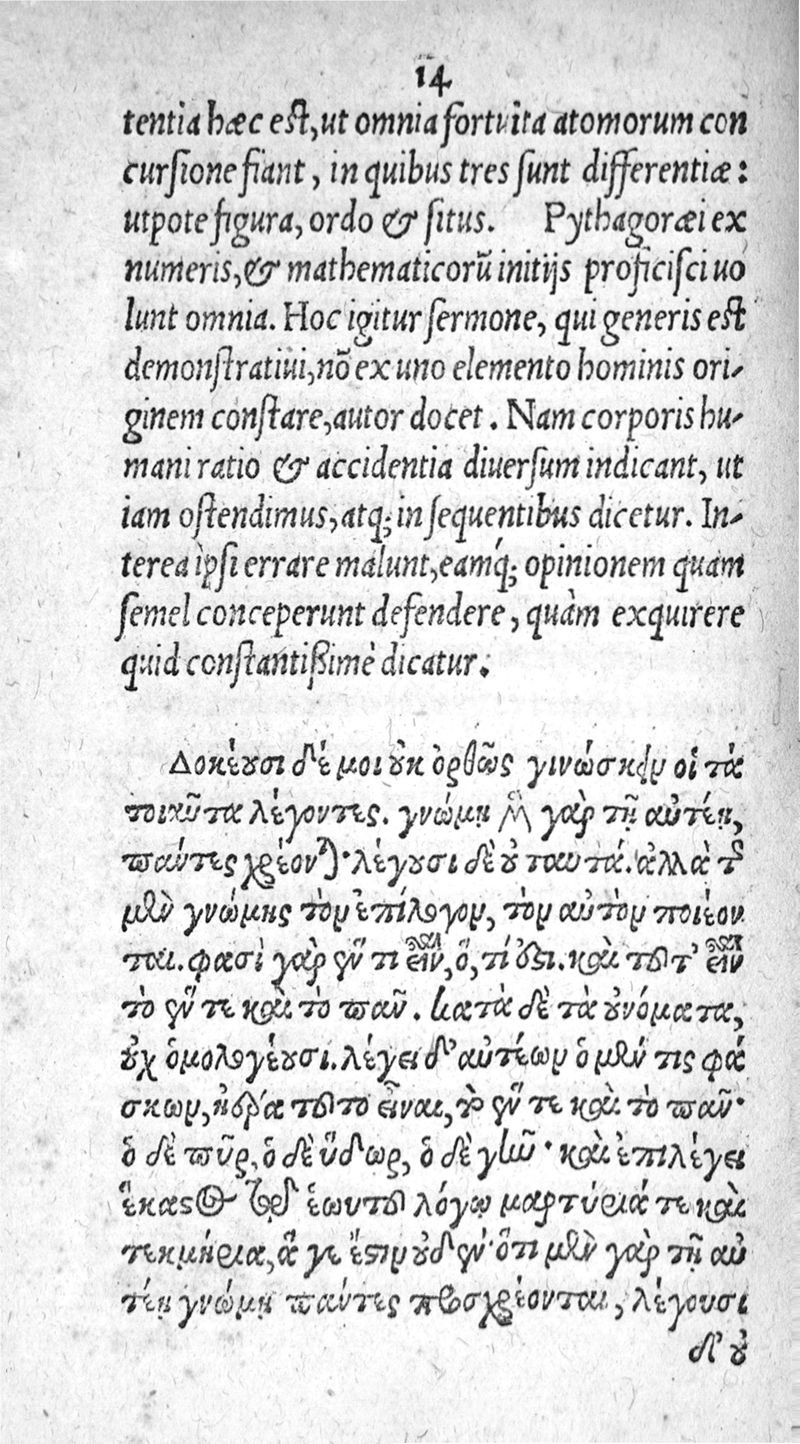 14
tentia hæc est, ut omnia fortuita atomorum con
cursione fiant, in quibus tres sunt differentiæ:
utpote figura, ordo & situs. Pythagoræi ex
numeris, & mathematicorū initijs proficisci uo
lunt omnia. Hoc igitur sermone, qui generis est
demonstratiui, nō ex uno elemento hominis ori-
ginem constare, autor docet. Nam corporis hu-
mani ratio & accidentia diuersum indicant, ut
iam ostendimus, atq; in sequentibus dicetur. In-
terea ipsi errare malunt, eamq́; opinionem quam
semel conceperunt defendere, quàm exquirere
quid constantißimè dicatur.
Δοκέουσι δέ μοι οὐκ ὀρθῶς γινώσκειν οἱ τὰ
τοιαῦτα λέγοντες. γνώμῃ μὲν γὰρ τῇ αὐτέῃ,
πάντες χρέονται· λέγουσι δὲ οὐ ταυτά. ἀλλὰ τῆς
μὲν γνώμης τὸν ἐπίλογον, τὸν αὐτὸν ποιέον
ται. φασὶ γὰρ ἕν τι εἶναι, ὅ, τί ἐστι. καὶ τοῦτ' εἶναι
τὸ ἕν τε καὶ τὸ πᾶν. κατὰ δὲ τὰ οὐνόματα,
οὐχ ὁμολογέουσι. λέγει δ' αὐτέων ὁ μέν τις φά
σκων, ἠέρα τοῦτο εἶναι, τὸ ἕν τε καὶ τὸ πᾶν·
ὁ δὲ πῦρ, ὁ δὲ ὕδωρ, ὁ δὲ γῆν· καὶ ἐπιλέγει
ἕκαστος τῷ ἑωυτοῦ λόγῳ μαρτύριά τε καὶ
τεκμήρια, ἅ γε ἔστιν οὐδέν· ὅτι μὲν γὰρ τῇ αὐ
τέῃ γνώμῃ πάντες προσχρέονται, λέγουσι
δ' οὐ